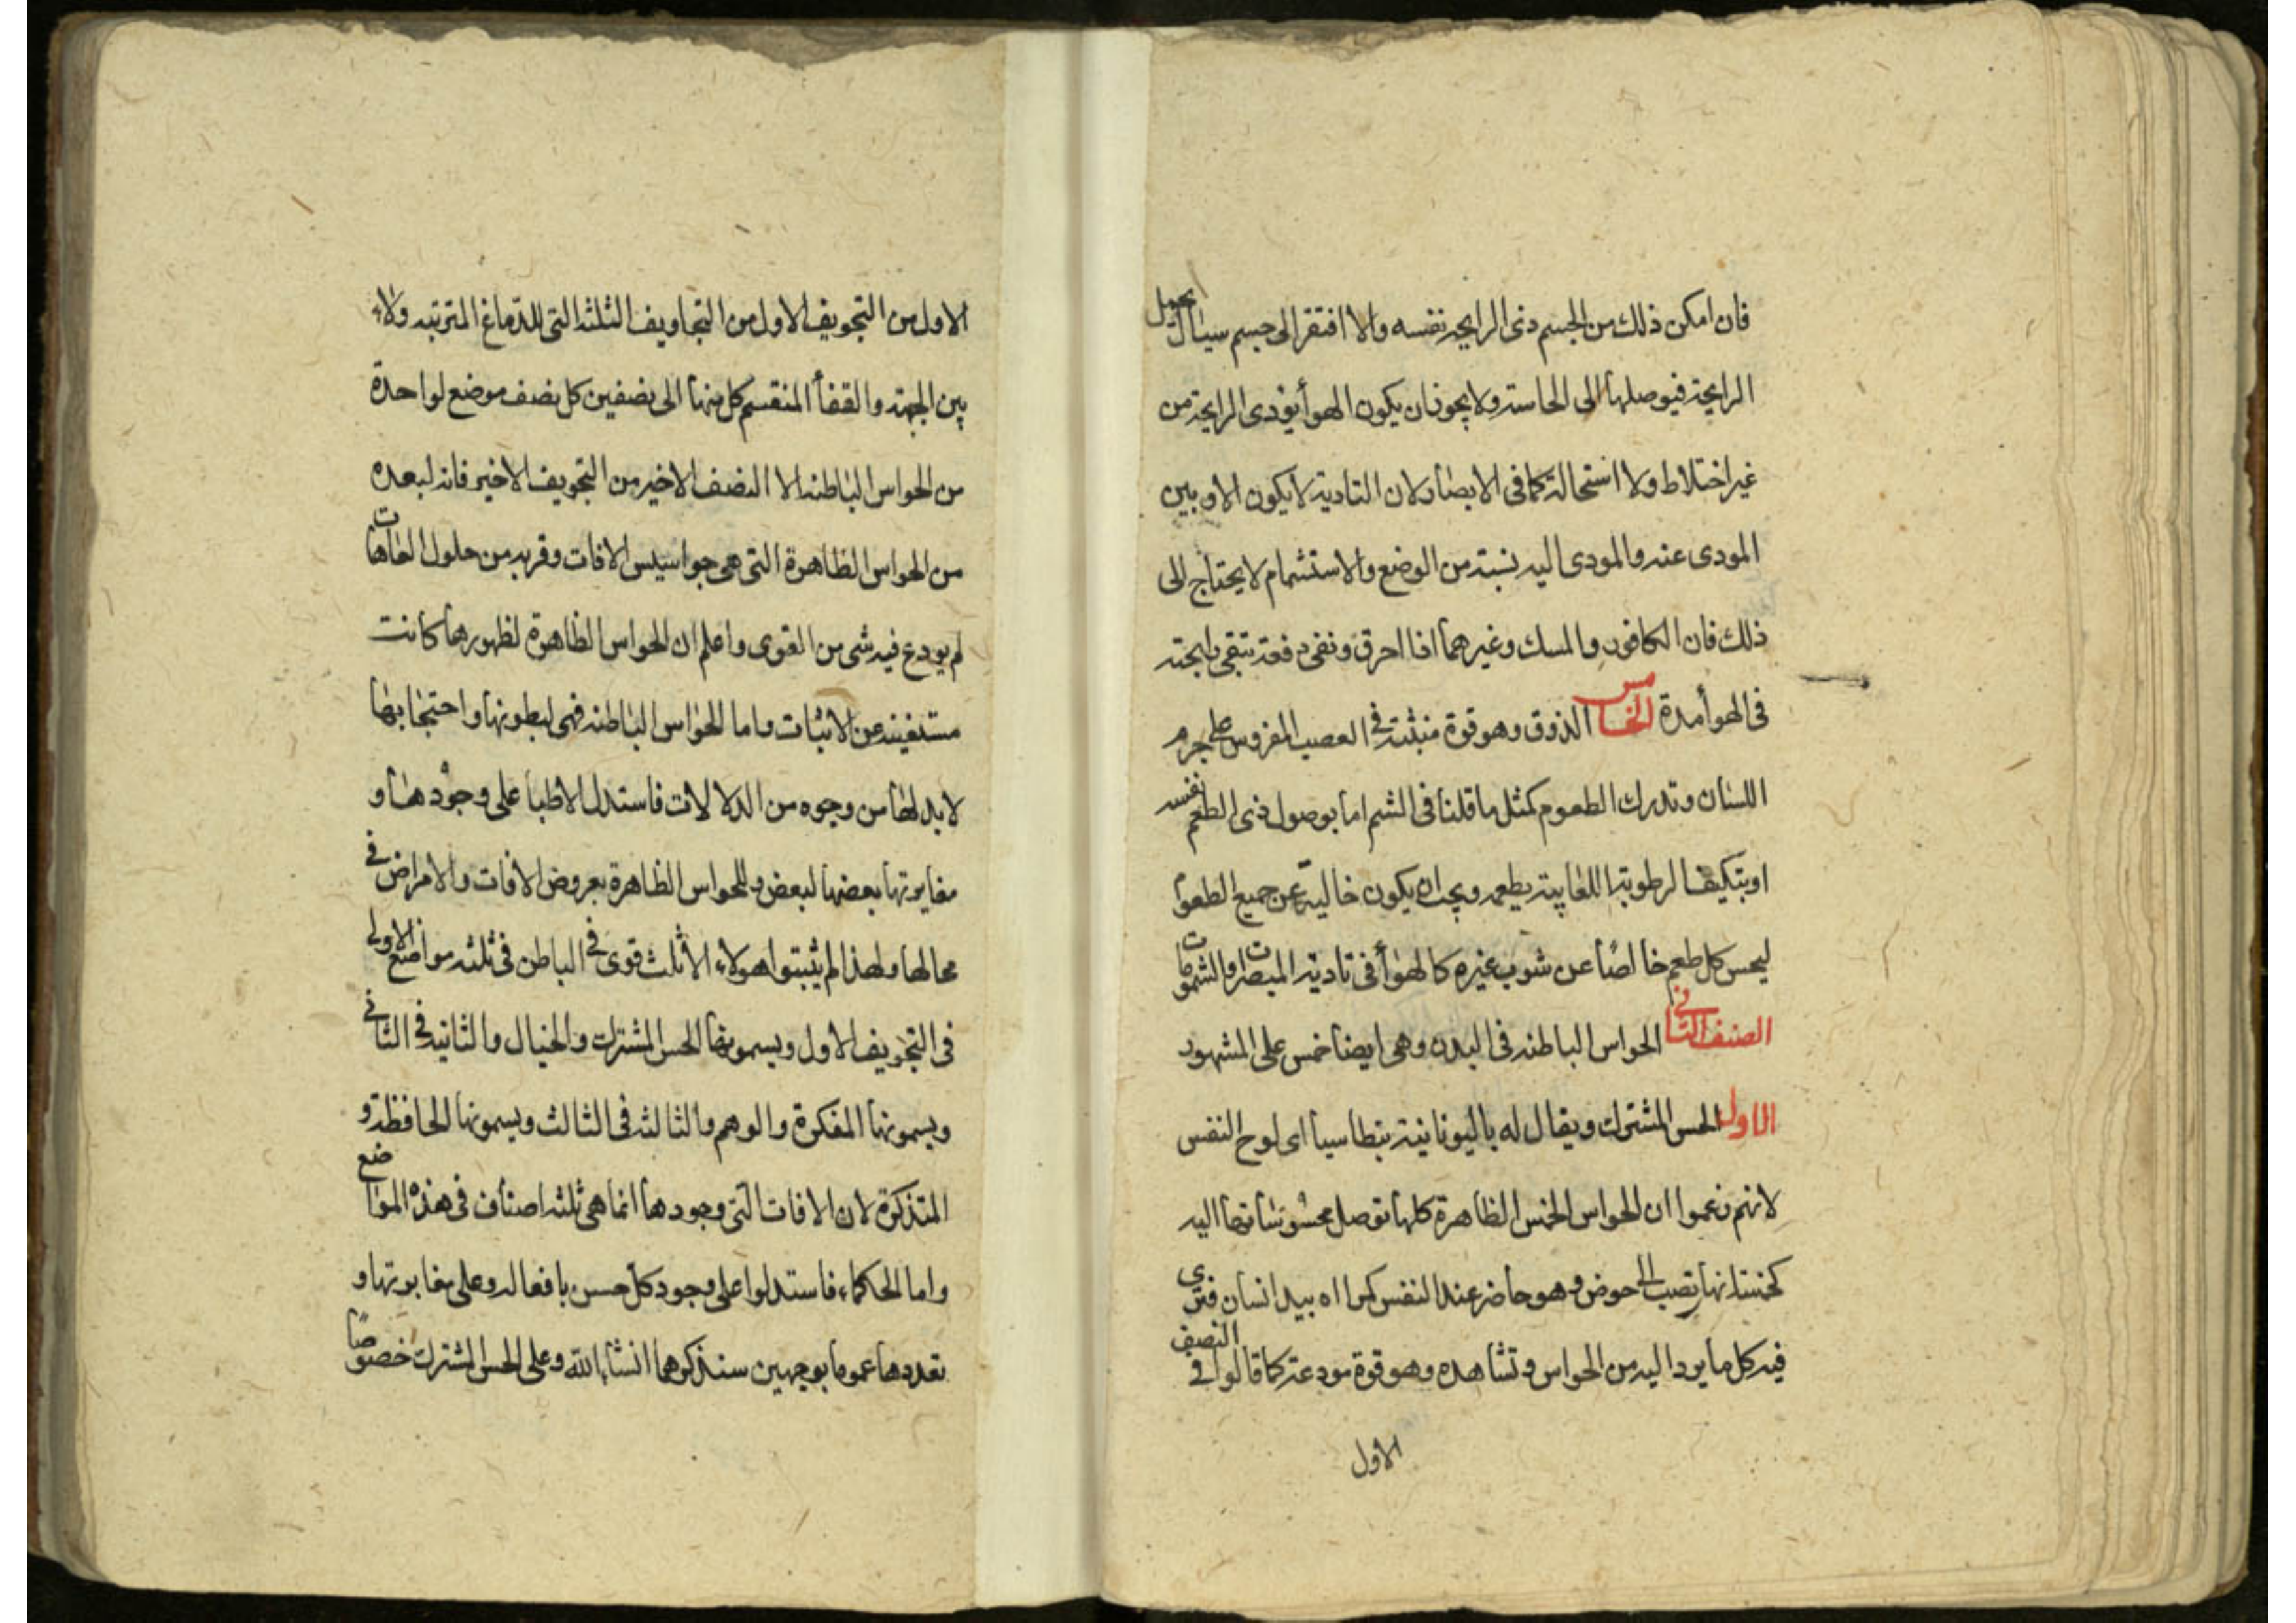 فان امكن ذلك من الجسم ذى الرايحة نفسه والا افتقر الى جسم سيال يحمل
الرايحة فيوصلها الى الحاسة ولا يجوز ان يكون الهوأ يؤدى الرايحة من
غير اختلاط ولا استحالة كما فى الابصار لان التادية لا يكون الا و بين
المودى عنه والمودى اليه نسبة من الوضع والاستشمام لا يحتاج الى
ذلك فان الكافور والمسك وغيرهما اذا احرق ونفى دفعة تبقى رايحته
فى الهوأ مدة الخامس الذوق وهو قوة منبثة فى العصب المفروس على جرم
اللسان وتدرك الطعوم كمثل ما قلنا فى الشم اما بوصول ذى الطعم نفسه
او بتكيف الرطوبة اللعابية بطعمه ويجب ان يكون خالية عن جميع الطعوم
ليحس كل طعم خالصًا عن شوب غيره كالهوأ فى تادية المبصرات والشمومات
الصنف الثانى الحواس الباطنة فى البدن وهى ايضا خمس على المشهور
الاول الحس المشترك ويقال له باليونانية بنطاسيا اى لوح النفس
لانهم زعموا ان الحواس الخمس الظاهرة كلها توصل محسوساتها اليه
كخمسة انهار تصب الى حوض وهو حاضر عند النفس كمراة بيد انسان فترى
فيه كل ما يرد اليه من الحواس وتشاهده وهو قوة مودعة كما قالوا فى النصف
الاول
الاول من التجويف الاول من التجاويف الثلثة التى للدماغ المترتبة ولاء
بين الجبهة والقفأ المنقسم كل منها الى نصفين كل نصف موضع لواحدة
من الحواس الباطنة الا النصف الاخير من التجويف الاخير فانه لبعده
من الحواس الظاهرة التى هى جواسيس الافات وقربه من حلول العاهات
لم يودع فيه شى من القوى واعلم ان الحواس الظاهرة لظهورها كانت
مستغنية عن الاثبات واما الحواس الباطنة فهى لبطونها واحتجابها
لابد لها من وجوه من الدلالات فاستدل الاطبأ على وجودها و
مغايرتها بعضها لبعض وللحواس الظاهرة بعروض الافات والامراض فى
محالها ولهذا لم يثبتوا هولاء الا ثلث قوى فى الباطن فى ثلثة مواضع الاولى
فى التجويف الاول ويسمونها الحس المشترك والخيال والثانية فى الثانى
ويسمونها المفكرة والوهم والثالثة فى الثالث ويسمونها الحافظة و
المتذكرة لان الافات التى وجودها انما هى ثلثة اصناف فى هذه المواضع
واما الحكماء فاستدلوا على وجود كل حس بافعاله وعلى مغايرتها و
تعددها عموما بوجهين سنذكرهما انشاء الله وعلى الحس المشترك خصوصًا